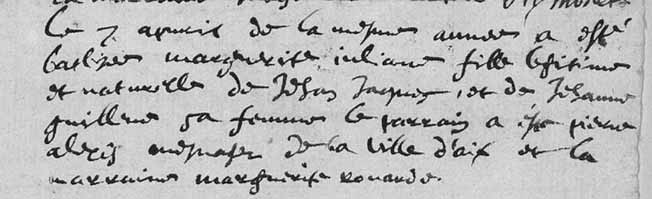 le 7 apvril de la mesme annee a esté
batisee marguerite juliane fille legitime
et naturelle de Jehan Jaques, et de Jehanne
guillene sa femme le parrain a esté pierre
alexis mesnager de la ville d'aix et la
marraine marguerite rouarde.